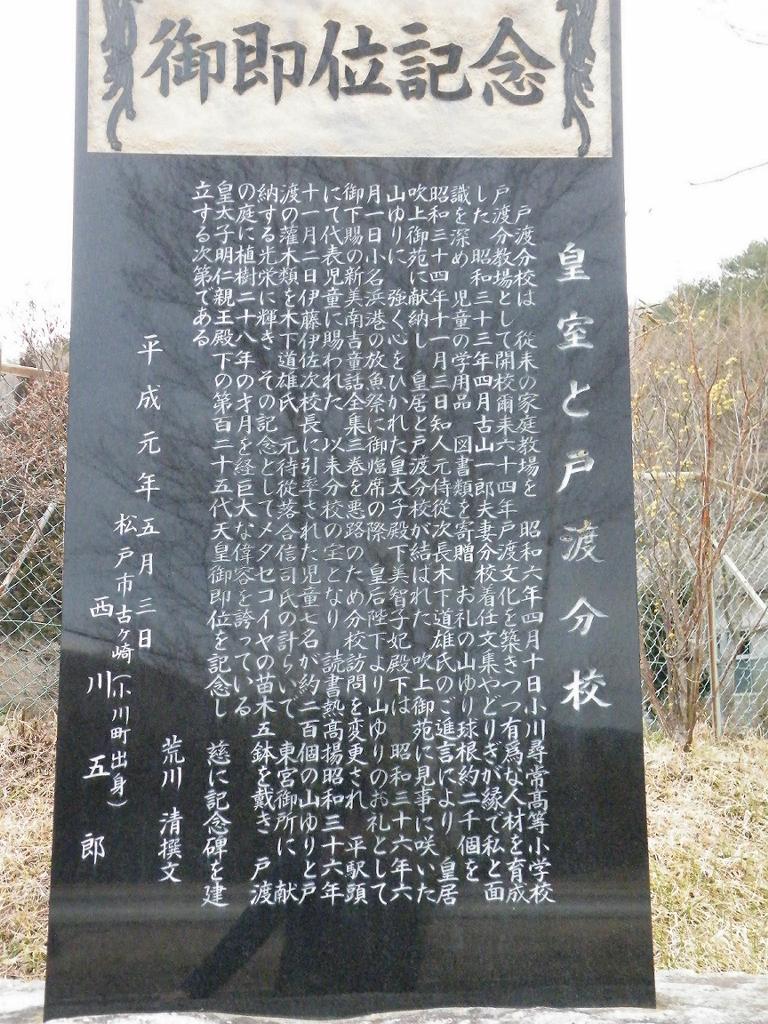 御即位記念
皇室と戸渡分校
戸渡分校は 従来の家庭教場を 昭和六年四月十日小川尋常高等小学校
戸渡分教場として開校爾来六十四年戸渡文化を築きつつ有爲な人材を育成
した 昭和三十三年四月古山一郎夫妻分校着任文集やどりぎが縁で私と面
識を深め 児童の学用品 図書類を寄贈 お礼の山ゆり球根約二千個を
昭和三十四年十一月三日知人元侍従次長木下道雄氏のご進言により 皇居
吹上御苑に献納し 皇居と戸渡分校が結ばれた 吹上御苑に見事に咲いた
山ゆりに 強く心をひかれた皇太子殿下美智子妃殿下は 昭和三十六年六
月一日小名浜港の放魚祭に御臨席の際 皇后陛下より山ゆりのお礼として
御下賜の新美南吉童話全集三巻を悪路のため分校訪問を変更され 平駅頭
にて代表児童に賜われた 以来分校の宝となり 読書熱高揚昭和三十六年
十一月二日伊藤伊佐次校長に引率された児童七名が約二百個の山ゆりと戸
渡の灌木類を木下道雄氏 元侍従落合信司氏の計らいで 東宮御所に 献
納する光栄に輝き その記念としてメタセコイヤの苗木五鉢を戴き 戸渡
の庭に植樹二十八年の才月を経巨大な偉容を誇っている
皇太子明仁親王殿下の第百二十五代天皇御即位を記念し 慈に記念碑を建
立する次第である
荒川 清撰文
平成元年五月三日
松戸市古ケ崎(小川町出身)
西川五郎